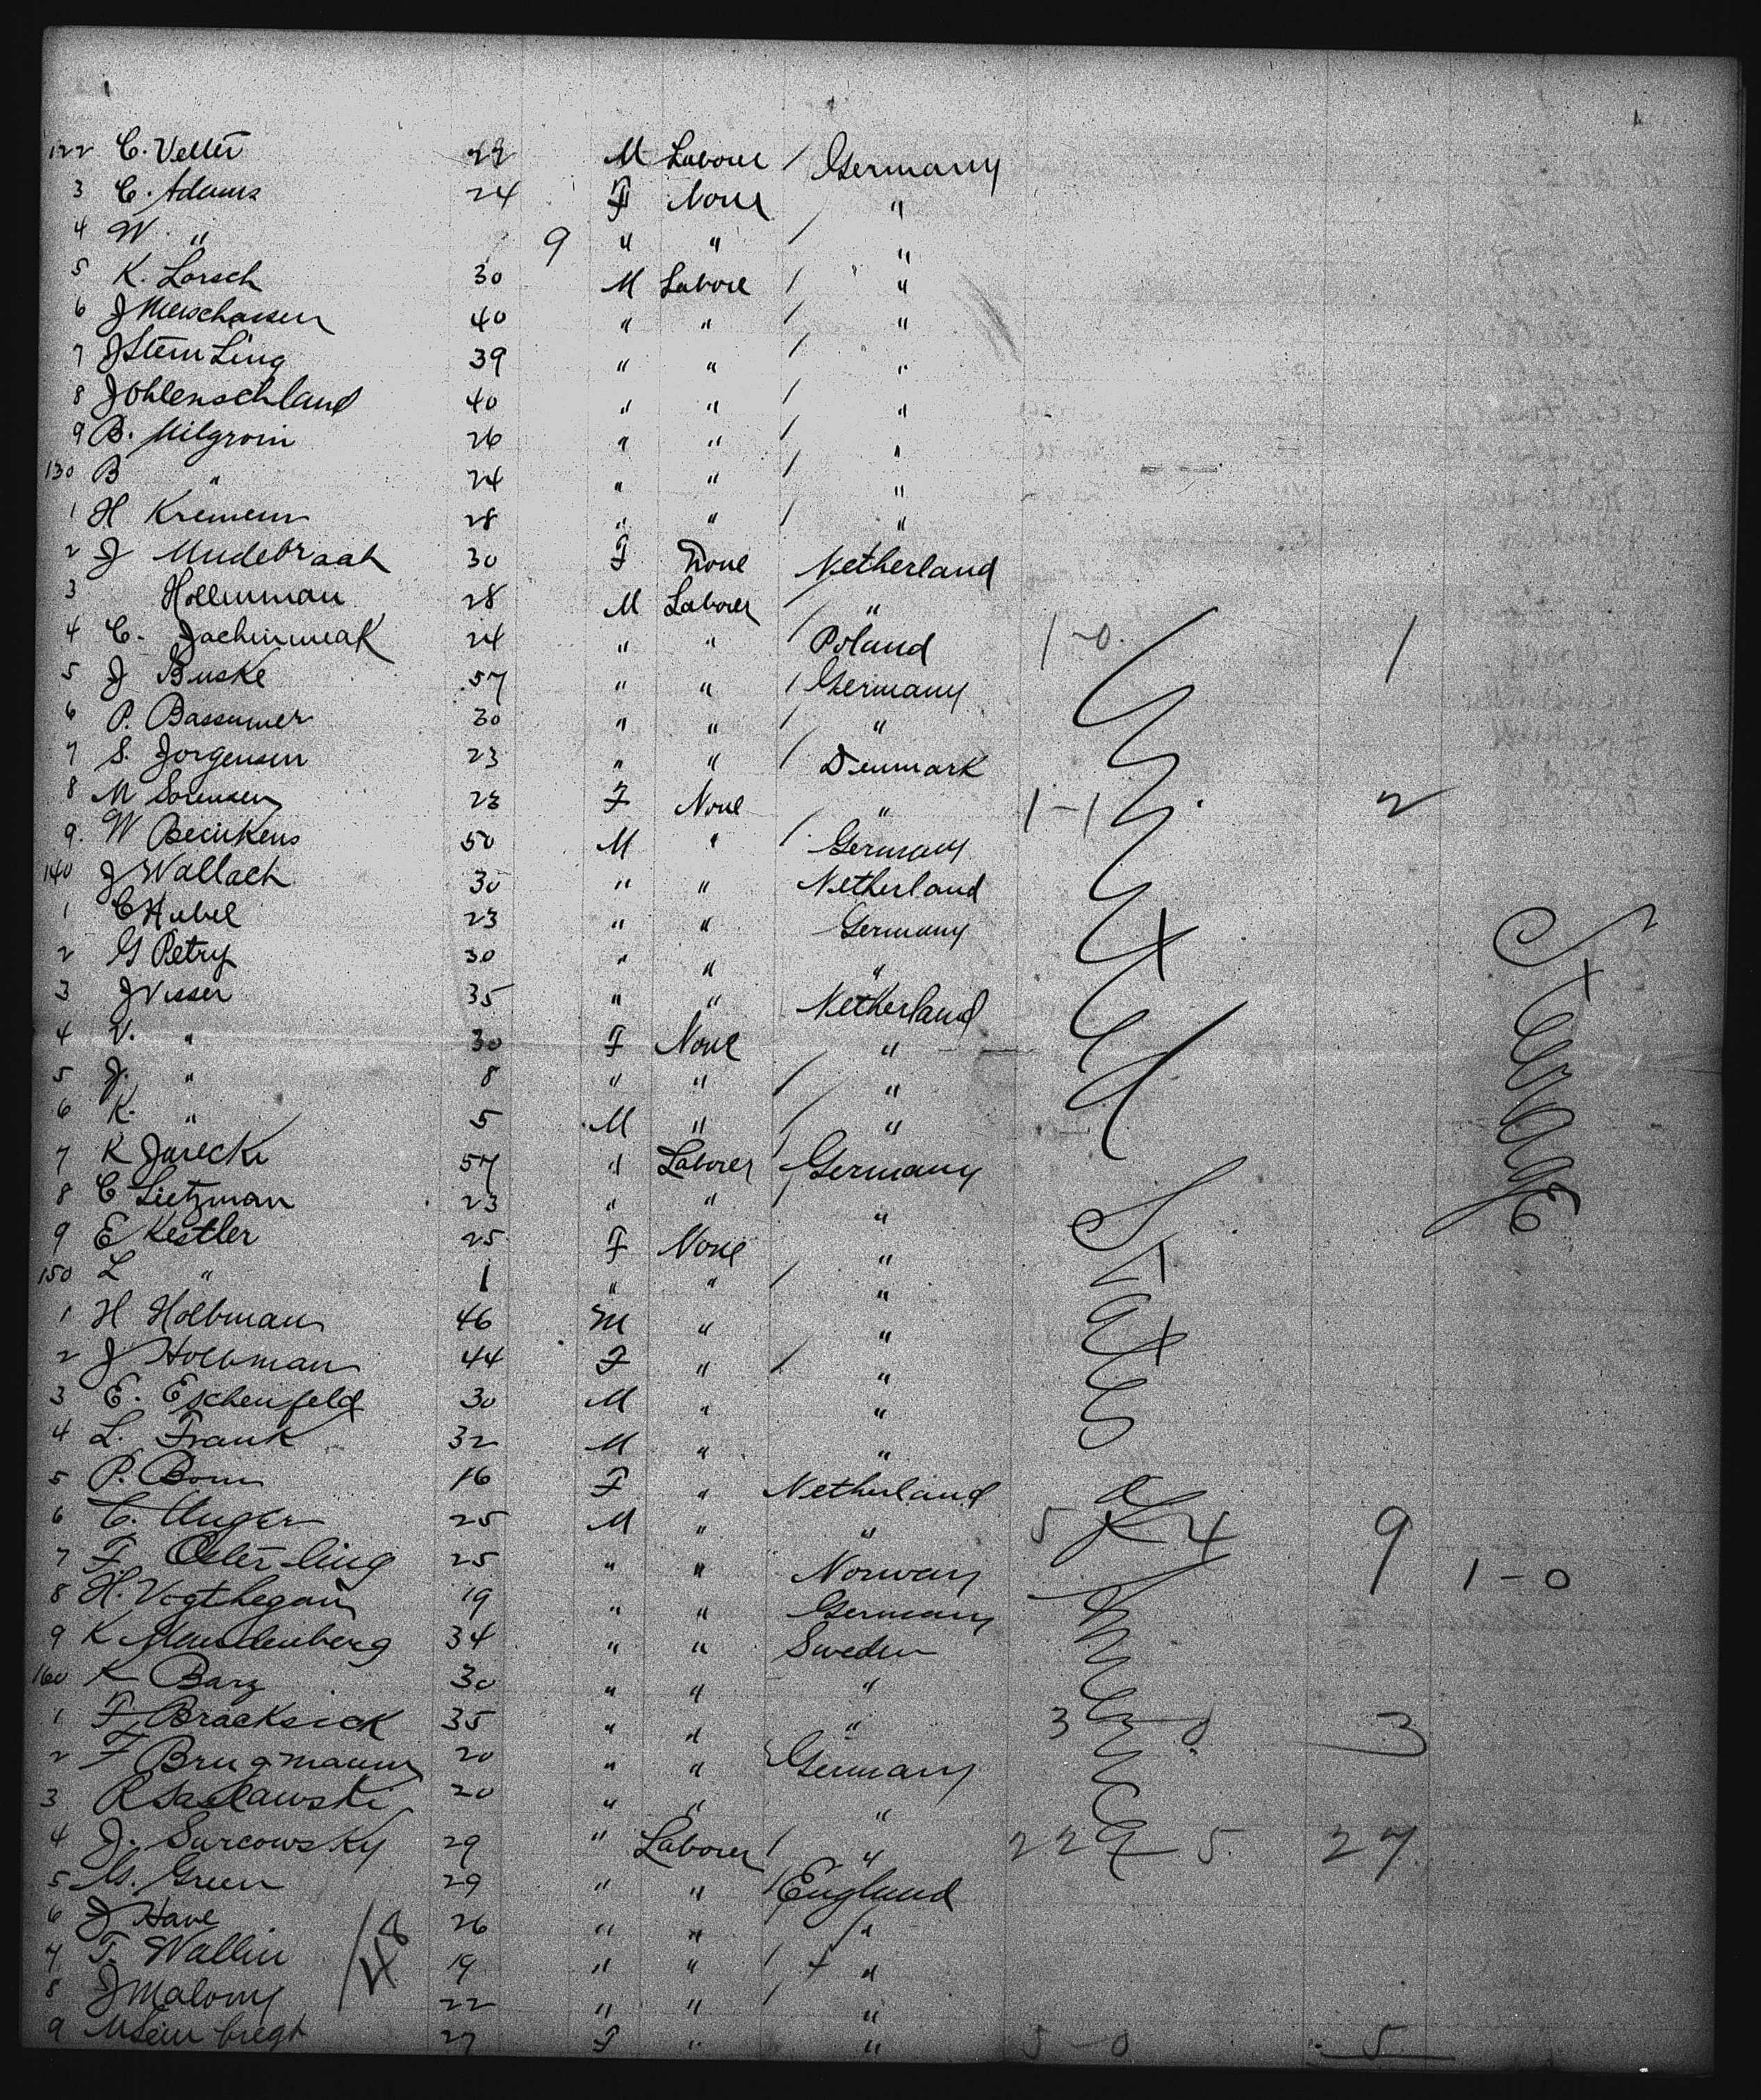 122 C. Vetter 22 M Laborer / Germany
3 C. Adams 24 F None "
4 W. " 9 " " / "
5 K. Lorsch 30 M Laborer / "
6 J 40 " " / "
7 J Stem Ling 39 " " / "
8 J Ohlenschland 40 " " / "
9 B. Milgrom 26 " " / "
130 B " 24 " " / "
1 H Kremem 28 " " / "
2 J Mudebraak 30 F None Netherland
3 Hollenman 28 M Laborer / "
4 C. 24 " " / Poland 1-0 1
5 J Buske 57 " " / Germany
6 P. Bassumer 30 " " / "
7 S. Jorgensen 23 " " / Denmark
8 M Sorensen 23 F None " 1-1 2
9. W 50 M " / Germany
140 J Wallach 30 " " Netherland
1 C Hubel 23 " " Germany
2 G Petry 30 " " "
3 J Visser 35 " " Netherland
4 V. " 30 F None / "
5 J. " 8 " " / "
6 K. " 5 M " / "
7 K Jarecki 57 " Laborer / Germany
8 C Lietzman 23 " " "
9 E Kestler 25 F None "
150 L " 1 " " / "
1 H Holbman 46 M " "
2 J Holbman 44 F " / "
3 E. Eschenfeld 30 M " "
4 L. Frank 32 M " "
5 P. Bom 16 F " Netherland
6 C. Unger 25 M " " 5 4 9
7 F. Osterling 25 " " Norway 1-0
8 H. 19 " " Germany
9 K 34 " " Sweden
160 K Barz 30 " " "
1 F Bracksick 35 " " " 3 0 3
2 F Brugmann 20 " " Germany
3 R Saslawski 20 " " "
4 J. Surcowsky 29 " Laborer / " 22 5 27
5 M. Green 29 " " / England
6 J Have 26 " " / "
7 T. Wallin 19 " " / "
8 J Malony 22 " " / "
9 27 F " " 5-0 5
48
United States
Steerage